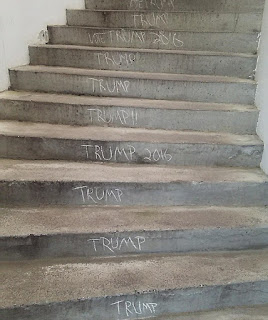 TRUMP
TRUMP 2016
TRUMP
TRUMP
TRUMP!!
TRUMP 2016
TRUMP
TRUMP
TRUMP